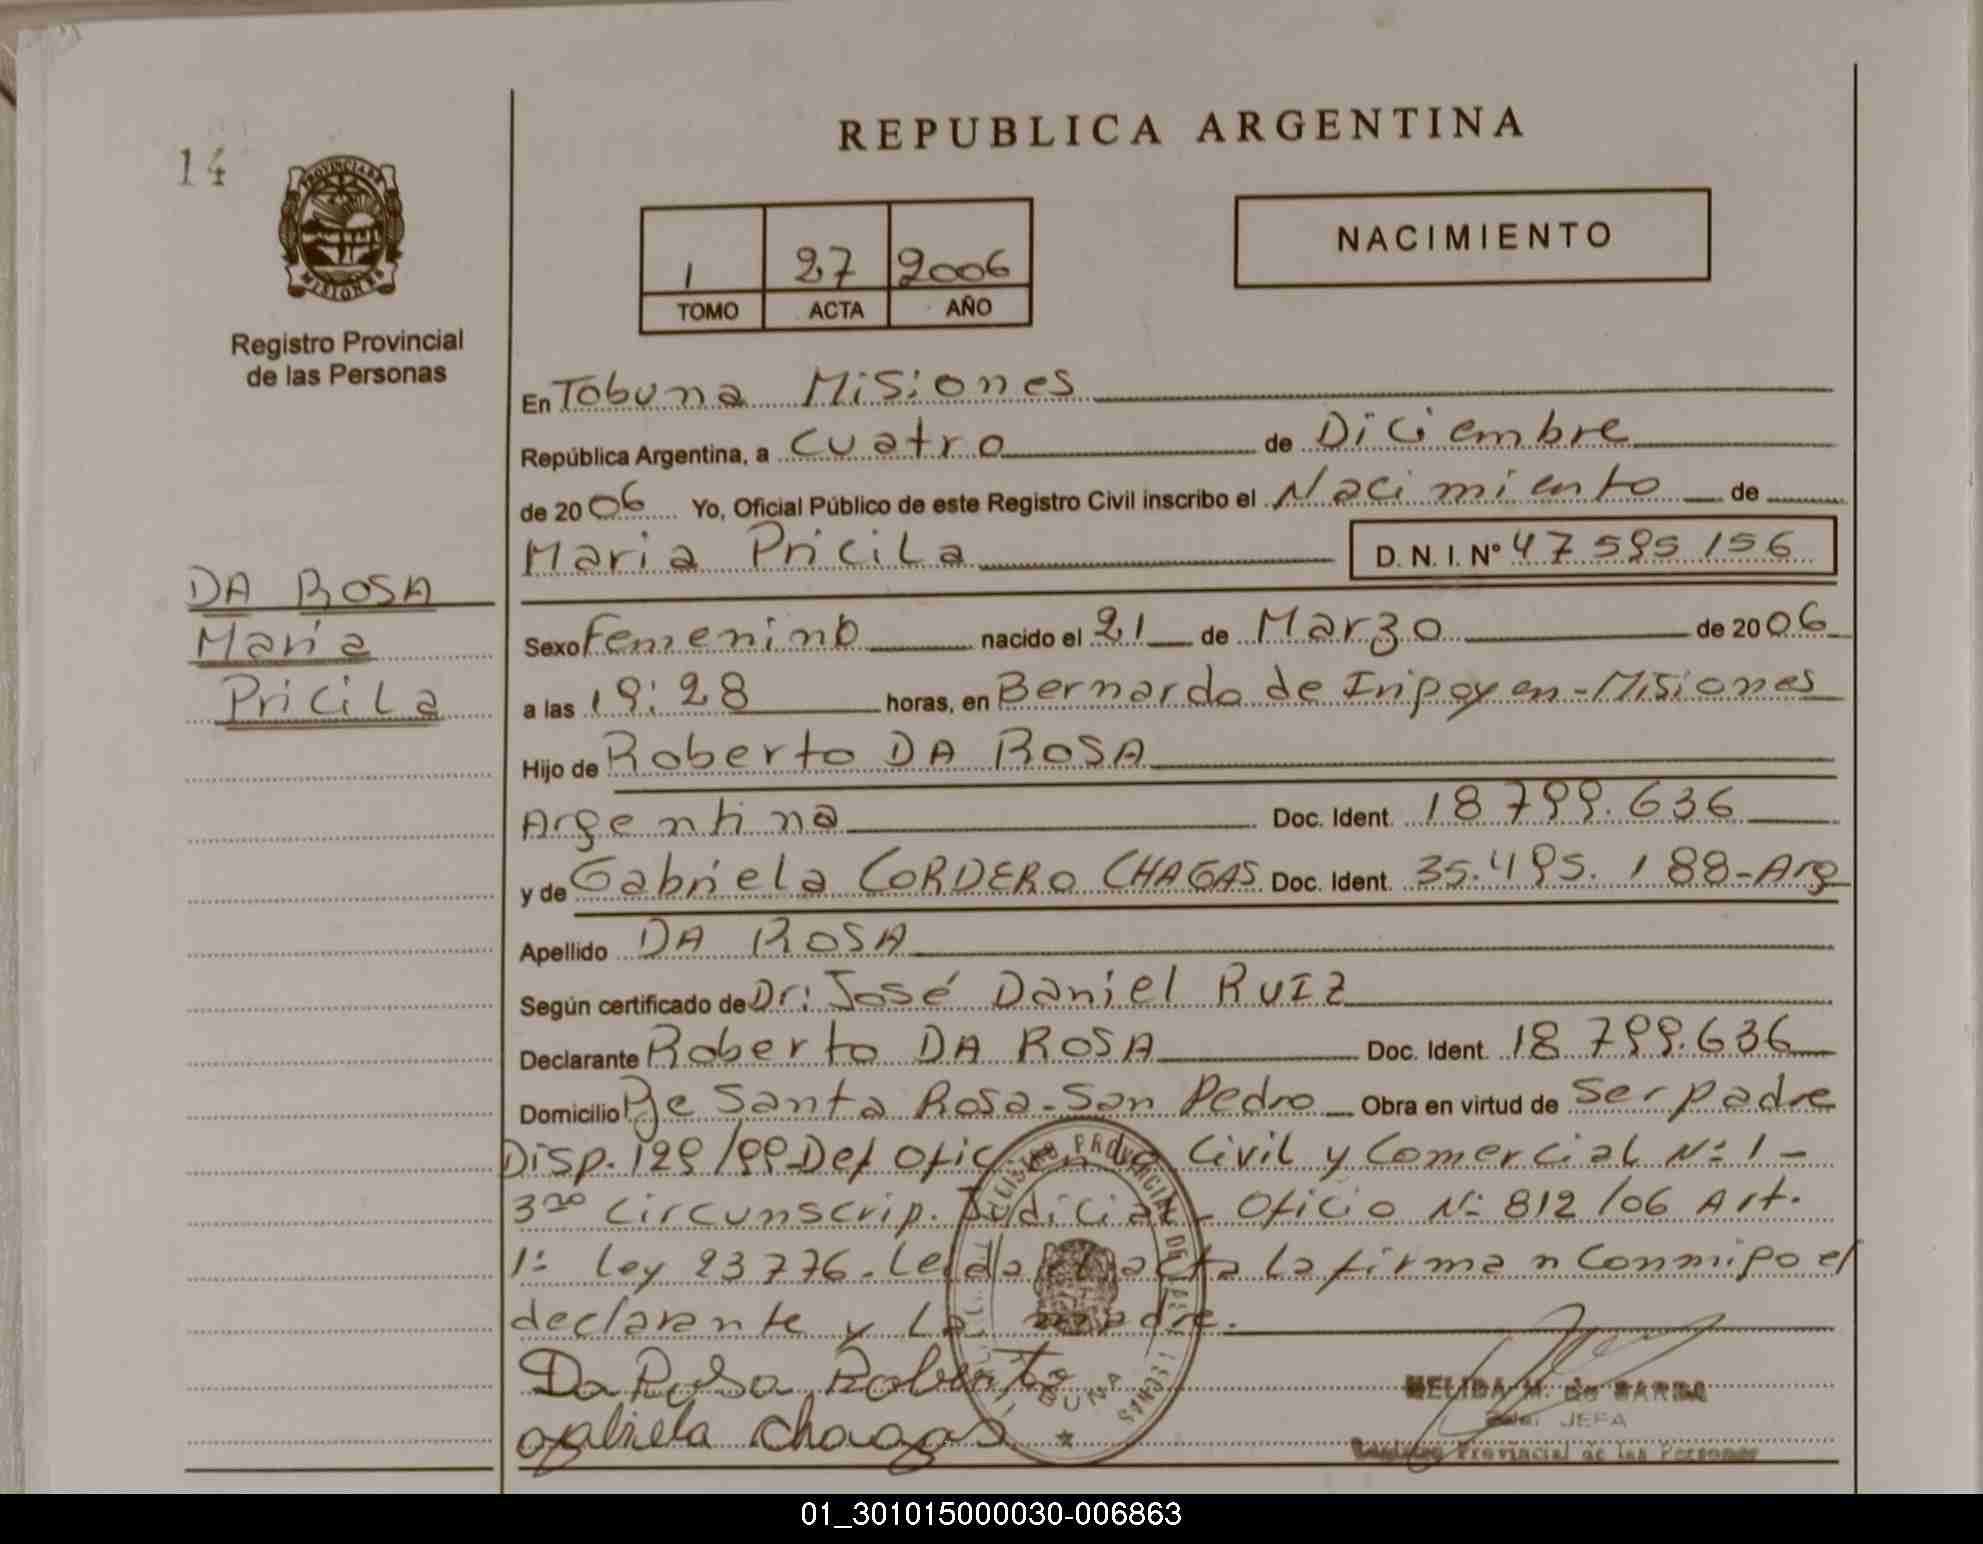 REPUBLICA ARGENTINA
14
PROVINCIA DE
MISIONES
Registro Provincial
de las Personas
NACIMIENTO
1 27 2006
TOMO ACTA AÑO
En Tobuna Misiones
República Argentina, a cuatro de Diciembre
de 2006 Yo, Oficial Público de este Registro Civil inscribo el Nacimiento de
Maria Pricila D. N. I. Nº 47 595 156
DA ROSA
Maria
Pricila
Sexo Femenino nacido el 21 de Marzo de 2006
a las 19:28 horas, en Bernardo de Iripoyen - Misiones
Hijo de Roberto DA ROSA
Argentina Doc. Ident. 18 799.636
y de Gabriela CORDERO CHAGAS Doc. Ident. 35.495.188-Arg
Apellido DA ROSA
Según certificado de Dr: José Daniel RUIZ
Declarante Roberto DA ROSA Doc. Ident. 18 799.636
Domicilio Pje Santa Rosa - San Pedro Obra en virtud de ser padre
Disp. 129/99 Def Ofic Civil y Comercial Nº 1 -
3ra Circunscrip. Judicial - Oficio Nº 812/06 Art.
1º Ley 23776. Leida el acta la firman conmigo el
declarante y la madre.
Da Rosa Roberto
gabriela chagas
NELIDA M. de BARBA
JEFA
Registro Provincial de las Personas
01_301015000030-006863